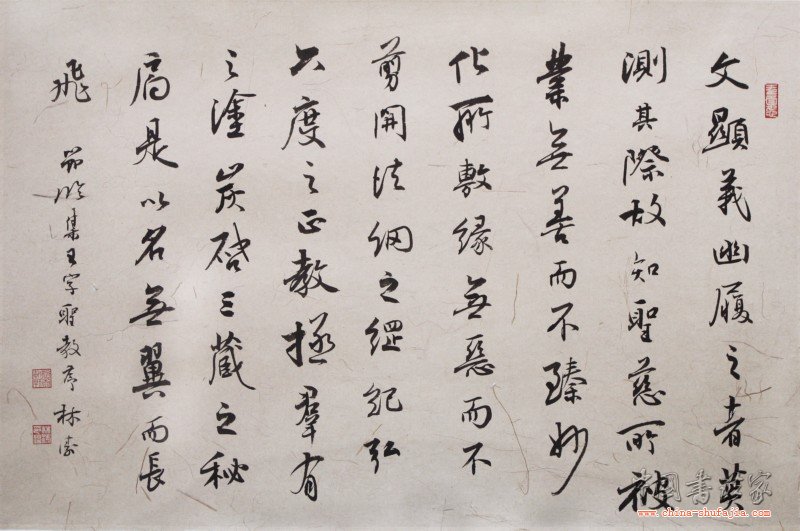 文顯義幽履之者莫
測其際故知聖慈所被
業無善而不臻妙
化所敷緣無惡而不
剪開法網之綱紀弘
六度之正教拯羣有
之塗炭啓三藏之秘
扃是以名無翼而長
飛
節臨集王字聖教序 林
www.china-shufajia.com